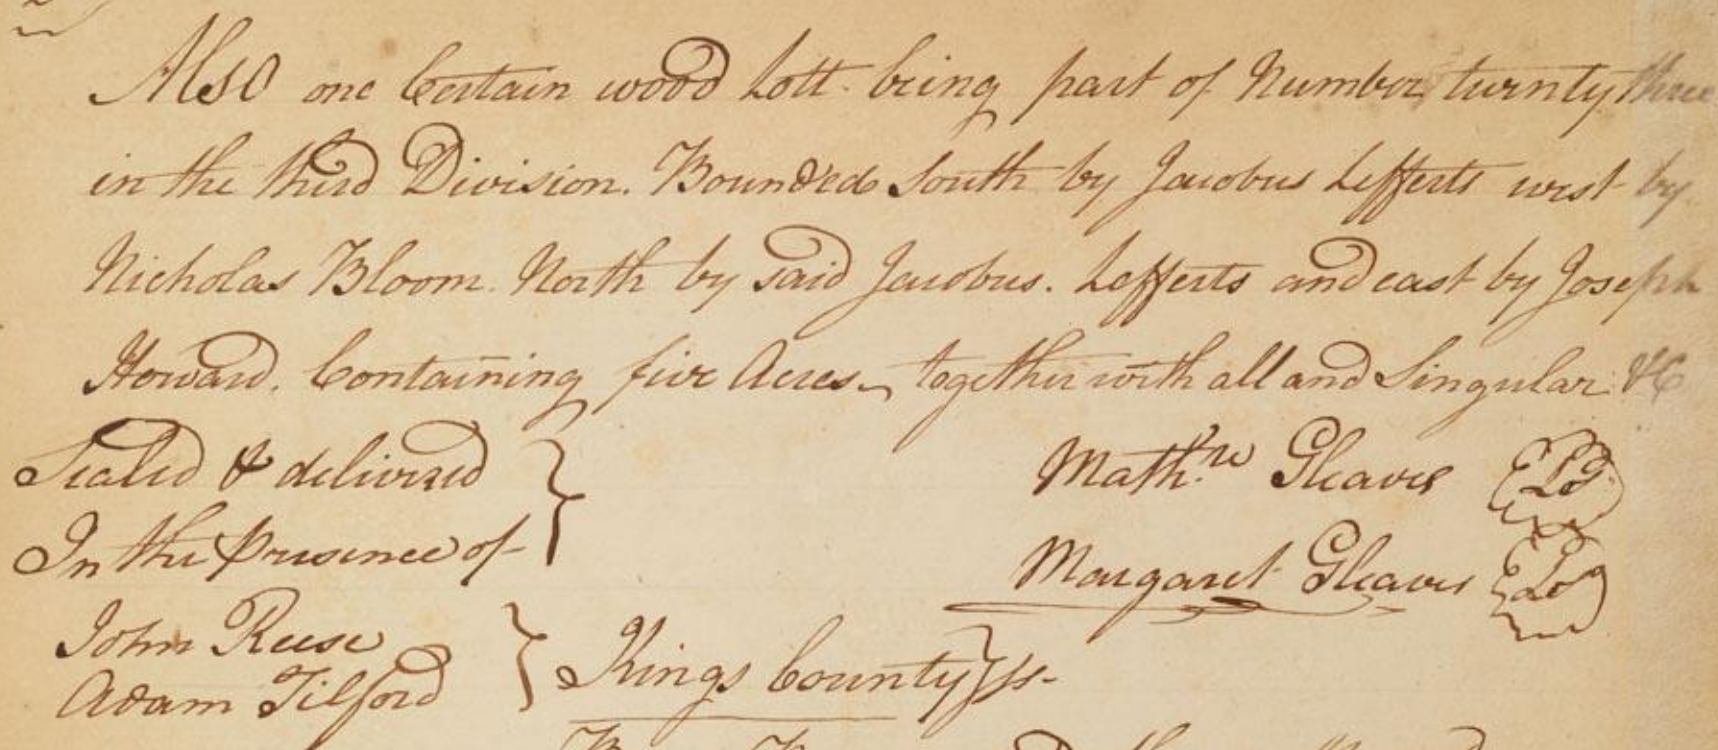 Also one Certain wood Lott being part of Number twenty three
in the third Division. Bounded South by Jacobus Lefferts west by
Nicholas Bloom. North by said Jacobus. Lefferts and east by Joseph
Howard. Containing five Acres together with all and Singular &c
Sealed & delivered
In the Presence of
Mathw Gleaves LS
Margaret Gleaves LS
John Reese
Adam Tilford
Kings County ss